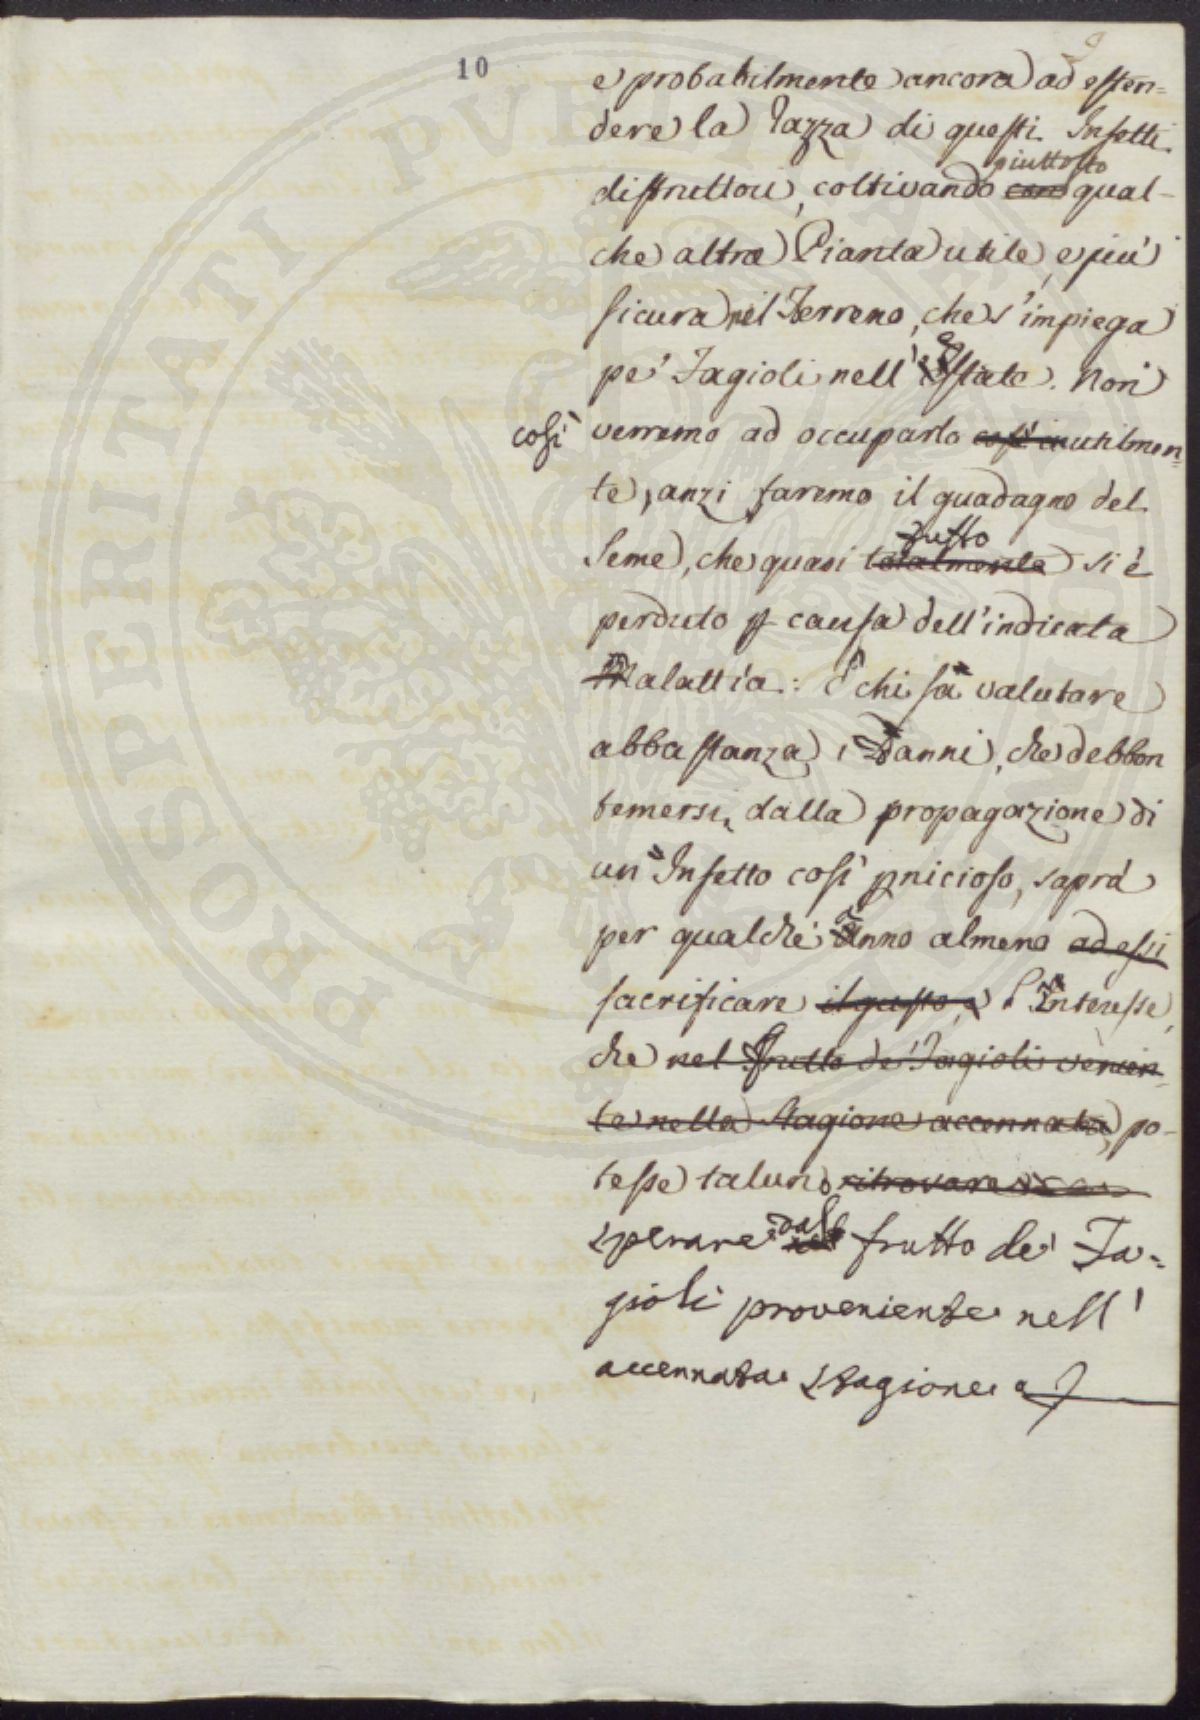 10
e probabilmente ancora ad esten=
dere la Razza di questi Insetti
piuttosto
distruttori, coltivando con qual-
che altra Pianta utile, e più
sicura nel Terreno, che s'impiega
pe' Fagioli nell'Estate. Non
così verremo ad occuparlo così inutilmen=
te, anzi faremo il guadagno del
tutto
Seme, che quasi totalmente si è
perduto p causa dell'indicata
Malattia: E chi sà valutare
abbastanza i Danni, che debbon
temersi dalla propagazione di
un Insetto così pnicioso, saprà
per qualche Anno almeno ad essi
sacrificare il gusto, e l'Interesse,
che nel frutto de' Fagioli venien-
te nella Stagione accennata, po-
tesse taluno ritrovare
dal
sperare nel frutto de' Fa=
gioli proveniente nell'
accennata Stagione
PROSPERITATI PVBLICAE AVGENDAE